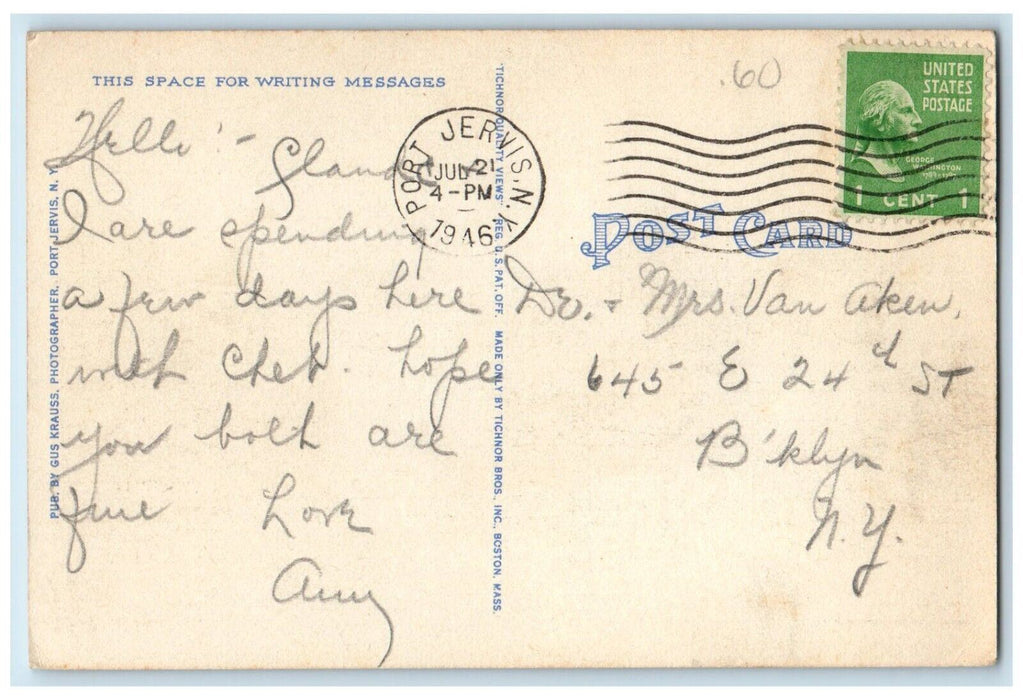 THIS SPACE FOR WRITING MESSAGES
Hello! -
I are spending
a few days here
with Chet. Hope
you both are
fine Love
Amy
PUB. BY GUS KRAUSS, PHOTOGRAPHER, PORT JERVIS, N. Y.
"TICHNOR QUALITY VIEWS" REG. U.S. PAT. OFF. MADE ONLY BY TICHNOR BROS., INC., BOSTON, MASS.
PORT JERVIS, N.Y.
JUL 21
4-PM
1946
.60
UNITED
STATES
POSTAGE
GEORGE
WASHINGTON
1 CENT 1
POST CARD
Dr. + Mrs. Van Aken,
645 E 24th ST
B'klyn
N.Y.